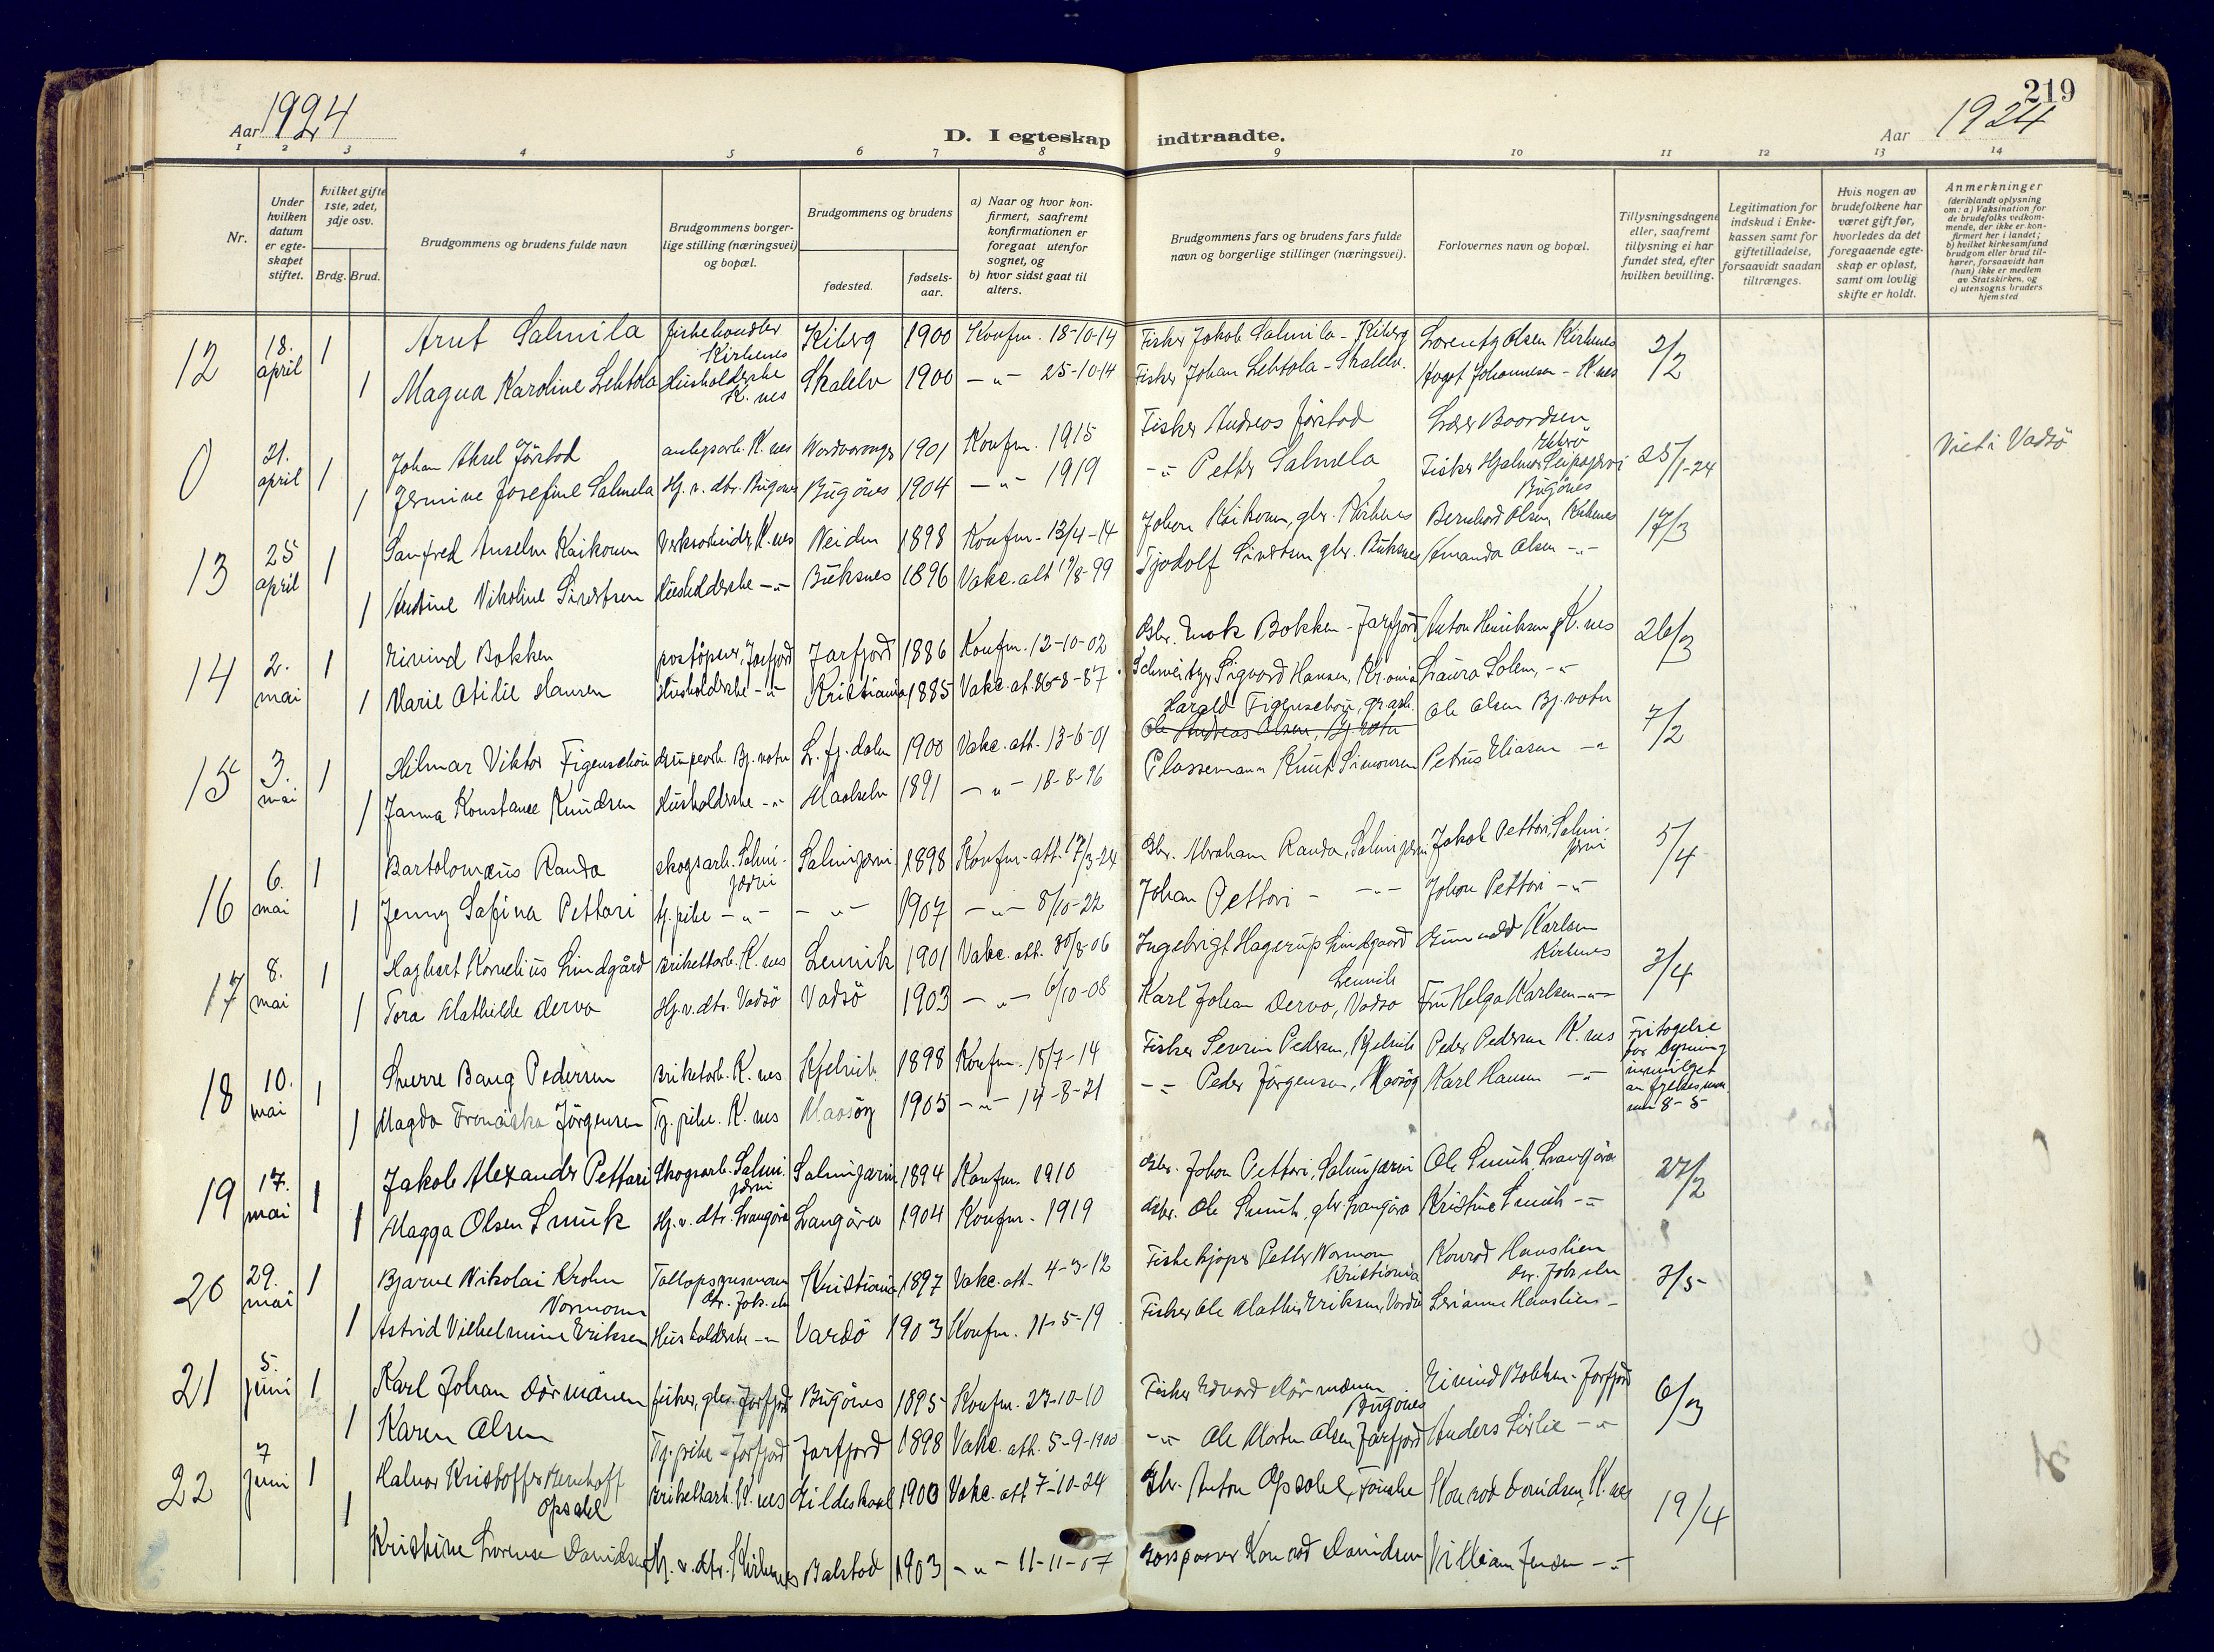 219
Aar 1924
D. I egteskap indtraadte.
Aar 1924
1 2 3 4 5 6 7 8 9 10 11 12 13 14
Nr.
Under hvilken datum er egteskapet stiftet.
hvilket gifte 1ste, 2det, 3dje osv.
Brdg. Brud.
Brudgommens og brudens fulde navn
Brudgommens borgerlige stilling (næringsvei) og bopæl.
Brudgommens og brudens
fødested.
fødselsaar.
a) Naar og hvor konfirmert, saafremt konfirmationen er foregaat utenfor sognet, og
b) hvor sidst gaat til alters.
Brudgommens fars og brudens fars fulde navn og borgerlige stillinger (næringsvei).
Forlovernes navn og bopæl.
Tillysningsdagene eller, saafremt tillysning ei har fundet sted, efter hvilken bevilling.
Legitimation for indskud i Enkekassen samt for giftetilladelse, forsaavidt saadan tiltrænges.
Hvis nogen av brudefolkene har været gift før, hvorledes da det foregaaende egteskap er opløst, samt om lovlig skifte er holdt.
Anmerkninger (deriblandt oplysning om: a) Vaksination for de brudefolks vedkommende, der ikke er konfirmert her i landet; b) hvilket kirkesamfund brudgom eller brud tilhører, forsaavidt han (hun) ikke er medlem av Statskirken, og c) utensogns bruders hjemsted
12 18. april 1 Arut Salmila fiskehandler Kirkenes Kiberg 1900 Konfm. 18-10-14 Fisker Jakob Salmila - Kiberg Lorentz Olsen Kirkenes 2/2
1 Magna Karoline Lehtola Husholderske K.nes Skalelv 1900 - " - 25-10-14 Fisker Johan Lehtola - Skalelv. Aagot Johannesen - K.nes
0 21. april 1 Johan Aksel Jörstad anlegsarb. K.nes 1901 Konfm. 1915 Fisker Andreas Jörstad Lærer Boordsen 25/1-24 Viet i Vadsö
1 Jermine Josefine Salmela Hj. v. dtr. Bugönes Bugönes 1904 - " - 1919 - " Petter Salmela Fisker Hjalmar Bugönes
13 25 april 1 Sanfred Anselm Kaikonen Verksarbeider K.nes Neiden 1898 Konfm. 13/4-14 Johan Kaikonen, gbr. Kirkenes Bernhard Olsen Kirkenes 17/3
1 Antine Nikoline Sivertsen Husholderske - " - Buksnes 1896 Vakc. att 19/8-99 Tjodolf Sivertsen gbr. Buksnes Amanda Olsen - " -
14 2. mai 1 Eivind Bokken postöpner, Jarfjord Jarfjord 1886 Konfm. 12-10-02 Gbr. Enok Bokken - Jarfjord Anton Henriksen, K.nes 26/3
1 Marie Otilie Hansen Husholderske - " - Kristiania 1885 Vakc. at. 26-8-87 Sigvard Hansen, Kr.ania Laura Solem, - "
15 3. mai 1 Hilmar Viktor Figenschou grupearb. Bj.vatn 1900 Vakc. att. 13-6-01 Harald Figenschou, gr.arb. Ole Andreas Olsen, Bj.vatn Ole Olsen Bj.vatn 7/2
1 Janna Konstance Knudsen Husholderske - " - Maalselv 1891 - " - 18-8-96 Plassemann Knut Simonsen Petrus Eliasen - "
16 6. mai 1 Bartolomæus Randa skogsarb. Salmijærvi Salmijærvi 1898 Konfm. att. 17/3-24 Gbr. Abraham Randa, Salmijærvi Jakob Pettari, Salmijærvi 5/4
1 Jenny Safina Pettari tj.pike - " - - " - 1907 - " - 8/10-22 Johan Pettari - - " - Johan Pettari - " -
17 8. mai 1 Hagbert Kornelius Lindgård Brikettarb. K.nes Lenvik 1901 Vakc. att. 30/8-06 Ingebrigt Hagerup Lindgaard Lenvik Gunvald Karlsen Kirkenes 3/4
1 Tora Mathilde Dervo Hj.v.dtr. Vadsö Vadsö 1903 - " - 6/10-08 Karl Johan Dervo, Vadsö Fru Helga Karlsen - " -
18 10. mai 1 Sverre Bang Pedersen Briketarb. K.nes Kjelvik 1898 Konfm. 18/7-14 Fisker Severin Pedersen, Kjelvik Peder Pedersen K.nes Fritagelse for lysning innvilget av fyldesmannen 8-5
1 Magda Fransiska Jörgensen Tj.pike. K.nes Maasöy 1905 - " - 14-8-21 - " Peder Jörgensen, Maasöy Karl Hansen - " -
19 17. mai 1 Jakob Alexander Pettari Skogsarb. Salmijærvi Salmijærvi 1894 Konfm. 1910 Gbr. Johan Pettari, Salmijærvi Ole Smuk, Svangöra 27/2
1 Magga Olsen Smuk Hj.v. dtr. Svangöra Svangöra 1904 Konfm. 1919 Gbr. Ole Smuk, gbr. Svangöra Kristine Smuk - "
20 29. mai 1 Bjarne Nikolai Krohn Normann Kristiania 1897 Vakc. att. 4-3-12 Fiskekjöper Petter Norman Kristiania Konrad Haustien 3/5
1 Astrid Vilhelmine Eriksen Husholderske - " Vardö 1903 Konfm. 11-5-19 Fisker Ole Mathis Eriksen, Vardö Haustien -
21 5. juni 1 Karl Johan Dörmänen fisker, gbr. Jarfjord Bugönes 1895 Konfm. 23-10-10 Fisker Edvard Dörmænen Bugönes Eivind Bokken - Jarfjord 6/3
1 Karen Olsen Tj. pike - Jarfjord Jarfjord 1898 Vakc. att. 5-9-1900 - " Ole Morten Olsen Jarfjord Anders Lirlie - "
22 7 juni 1 Halvor Kristoffer Opsahl Brikettarb. K.nes Gildeskaal 1900 Vakc. att 7-10-24 Gbr. Anton Opsahl, Fauske Konrad Davidsen, K.nes 19/4
1 Kristine Lovense Davidsen Hj. v. dtr. Kirkenes Balstad 1903 - " - 11-11-07 Konrad Davidsen William Jensen - " -